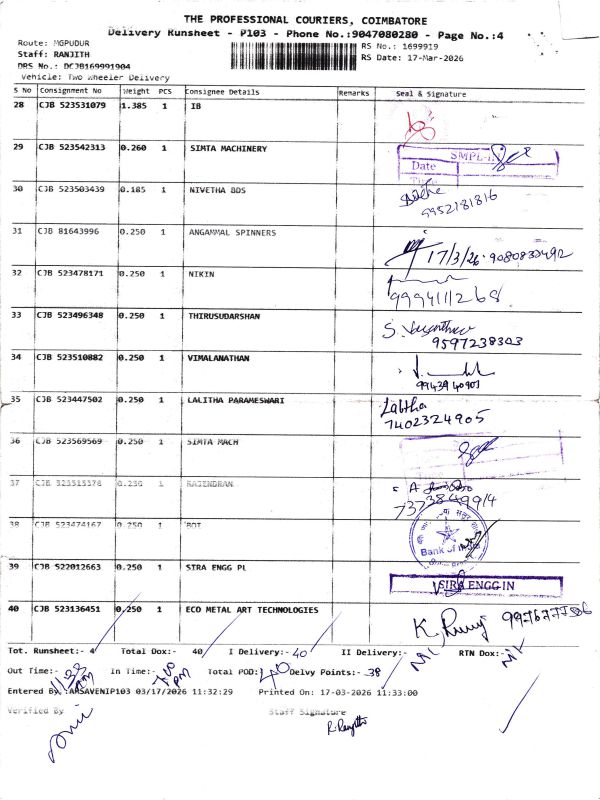 THE PROFESSIONAL COURIERS, COIMBATORE
Delivery Runsheet - P103 - Phone No.:9047080280 - Page No.:4
Route: MGPUDUR
RS No.: 1699919
Staff: RANJITH
RS Date: 17-Mar-2026
DRS No.: DCJB169991904
Vehicle: Two Wheeler Delivery
S No Consignment No Weight PCS Consignee Details Remarks Seal & Signature
28 CJB 523531079 1.385 1 IB
29 CJB 523542313 0.260 1 SIMTA MACHINERY
SMPL
Date
30 CJB 523503439 0.185 1 NIVETHA BDS
9952181816
31 CJB 81643996 0.250 1 ANGAMMAL SPINNERS
17/3/26
32 CJB 523478171 0.250 1 NIKIN
9994111268
33 CJB 523496348 0.250 1 THIRUSUDARSHAN
9597238303
34 CJB 523510882 0.250 1 VIMALANATHAN
35 CJB 523447502 0.250 1 LALITHA PARAMESWARI
Lalitha
7402324905
36 CJB 523569569 0.250 1 SIMTA MACH
37 CJB 523515378 0.250 1 RAJENDRAN
38 CJB 523474167 0.250 1 BOT
Bank of
39 CJB 522012663 0.250 1 SIRA ENGG PL
SIRA ENGG IN
40 CJB 523136451 0.250 1 ECO METAL ART TECHNOLOGIES
Tot. Runsheet:- 4 Total Dox:- 40 I Delivery:- 40 II Delivery:- RTN Dox:-
Out Time:- In Time:- Total POD:- 40 Delvy Points:- 38
Entered By :ARSAVENIP103 03/17/2026 11:32:29 Printed On: 17-03-2026 11:33:00
Verified By Staff Signature
R. Ranjith